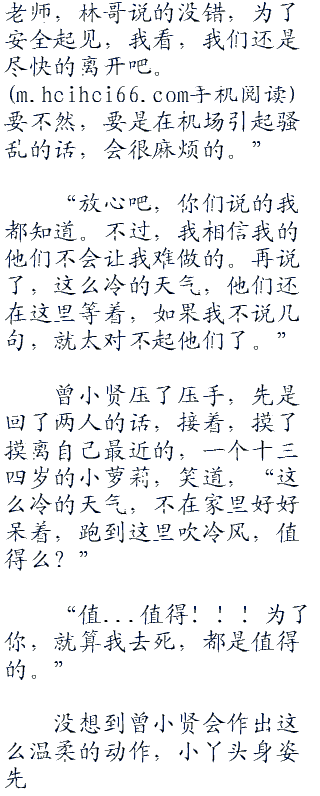 老师，林哥说的没错，为了
安全起见，我看，我们还是
尽快的离开吧。
(m.hcihci66.com手机阅读)
要不然，要是在机场引起骚
乱的话，会很麻烦的。”
“放心吧，你们说的我
都知道。不过，我相信我的
他们不会让我难做的。再说
了，这么冷的天气，他们还
在这里等着，如果我不说几
句，就太对不起他们了。”
曾小贤压了压手，先是
回了两人的话，接着，摸了
摸离自己最近的，一个十三
四岁的小萝莉，笑道，“这
么冷的天气，不在家里好好
呆着，跑到这里吹冷风，值
得么？”
“值...值得！！！为了
你，就算我去死，都是值得
的。”
没想到曾小贤会作出这
么温柔的动作，小丫头身姿
先